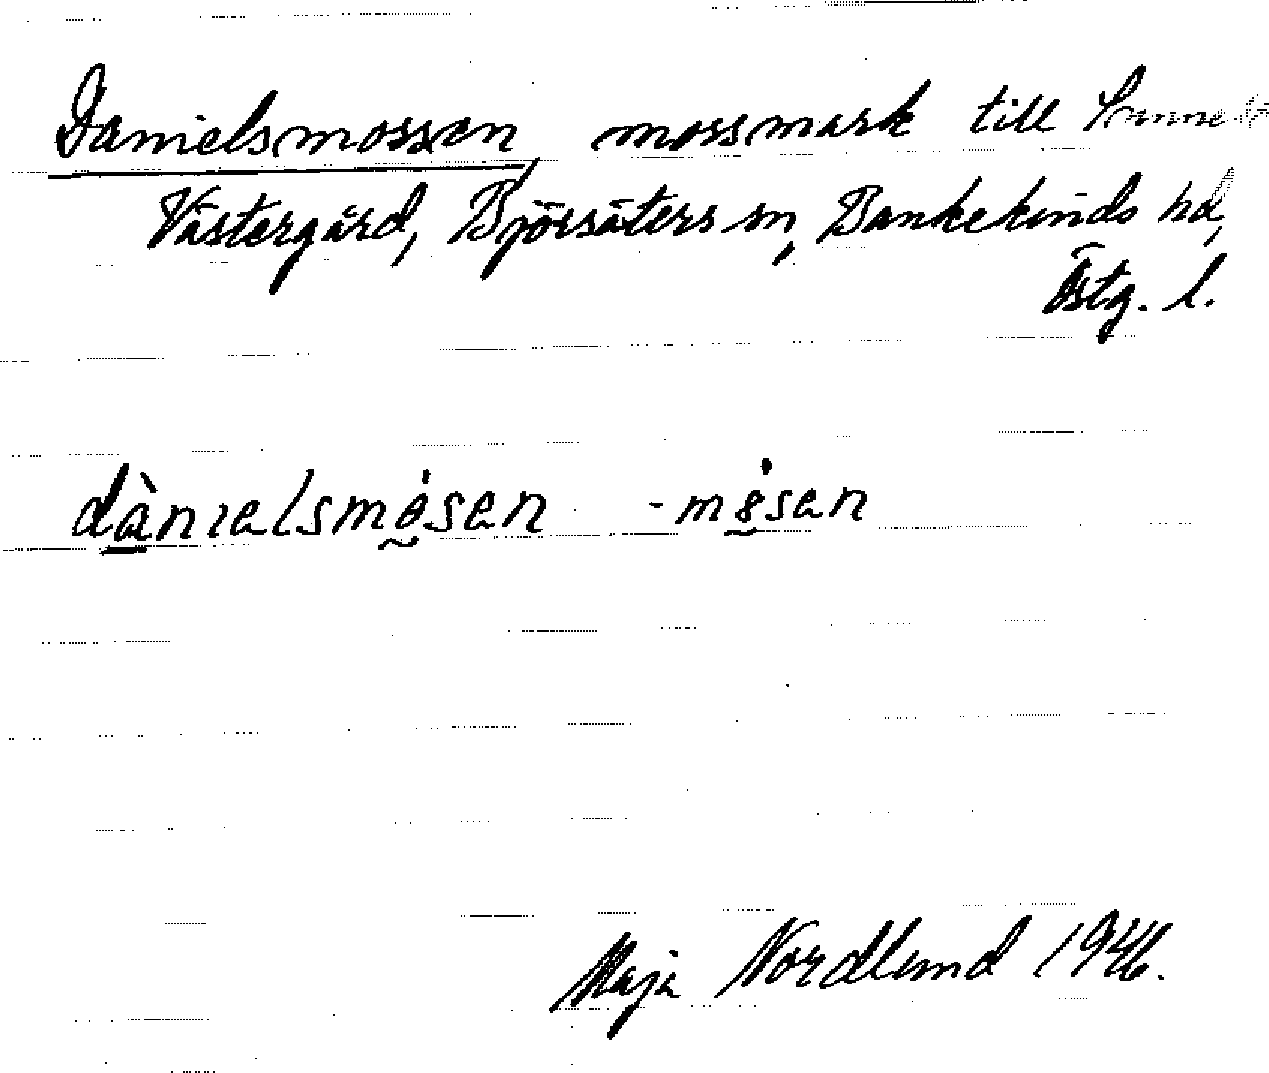 Danielsmossen, mossmark till
Västergård, Björsäters sn, Bankekinds hd,
Östg. l.
dànielsmȯsen -mȯsen
Maja Nordlund 1946.